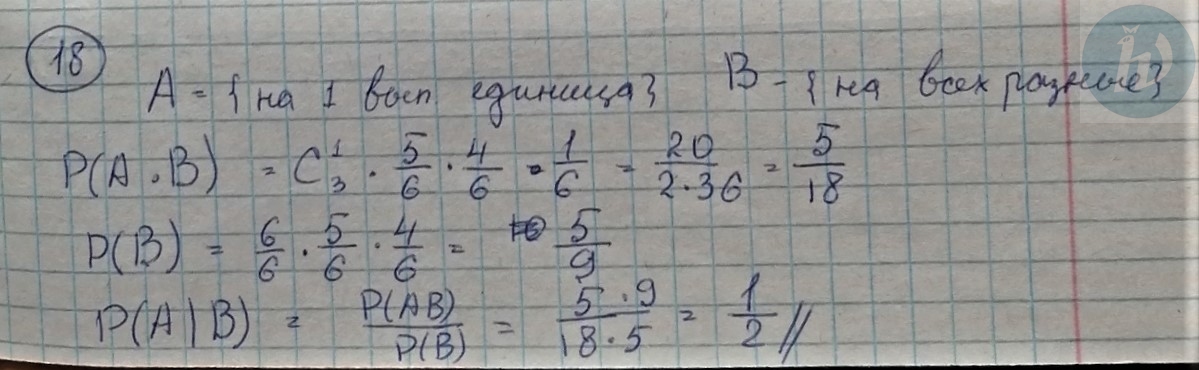 18
A = { на 1 вып. единица} B - { на всех разные}
P(A . B) = C₃¹ · 5/6 · 4/6 · 1/6 = 20/(2·36) = 5/18
P(B) = 6/6 · 5/6 · 4/6 = 5/9
P(A|B) = P(AB)/P(B) = (5·9)/(18·5) = 1/2 //